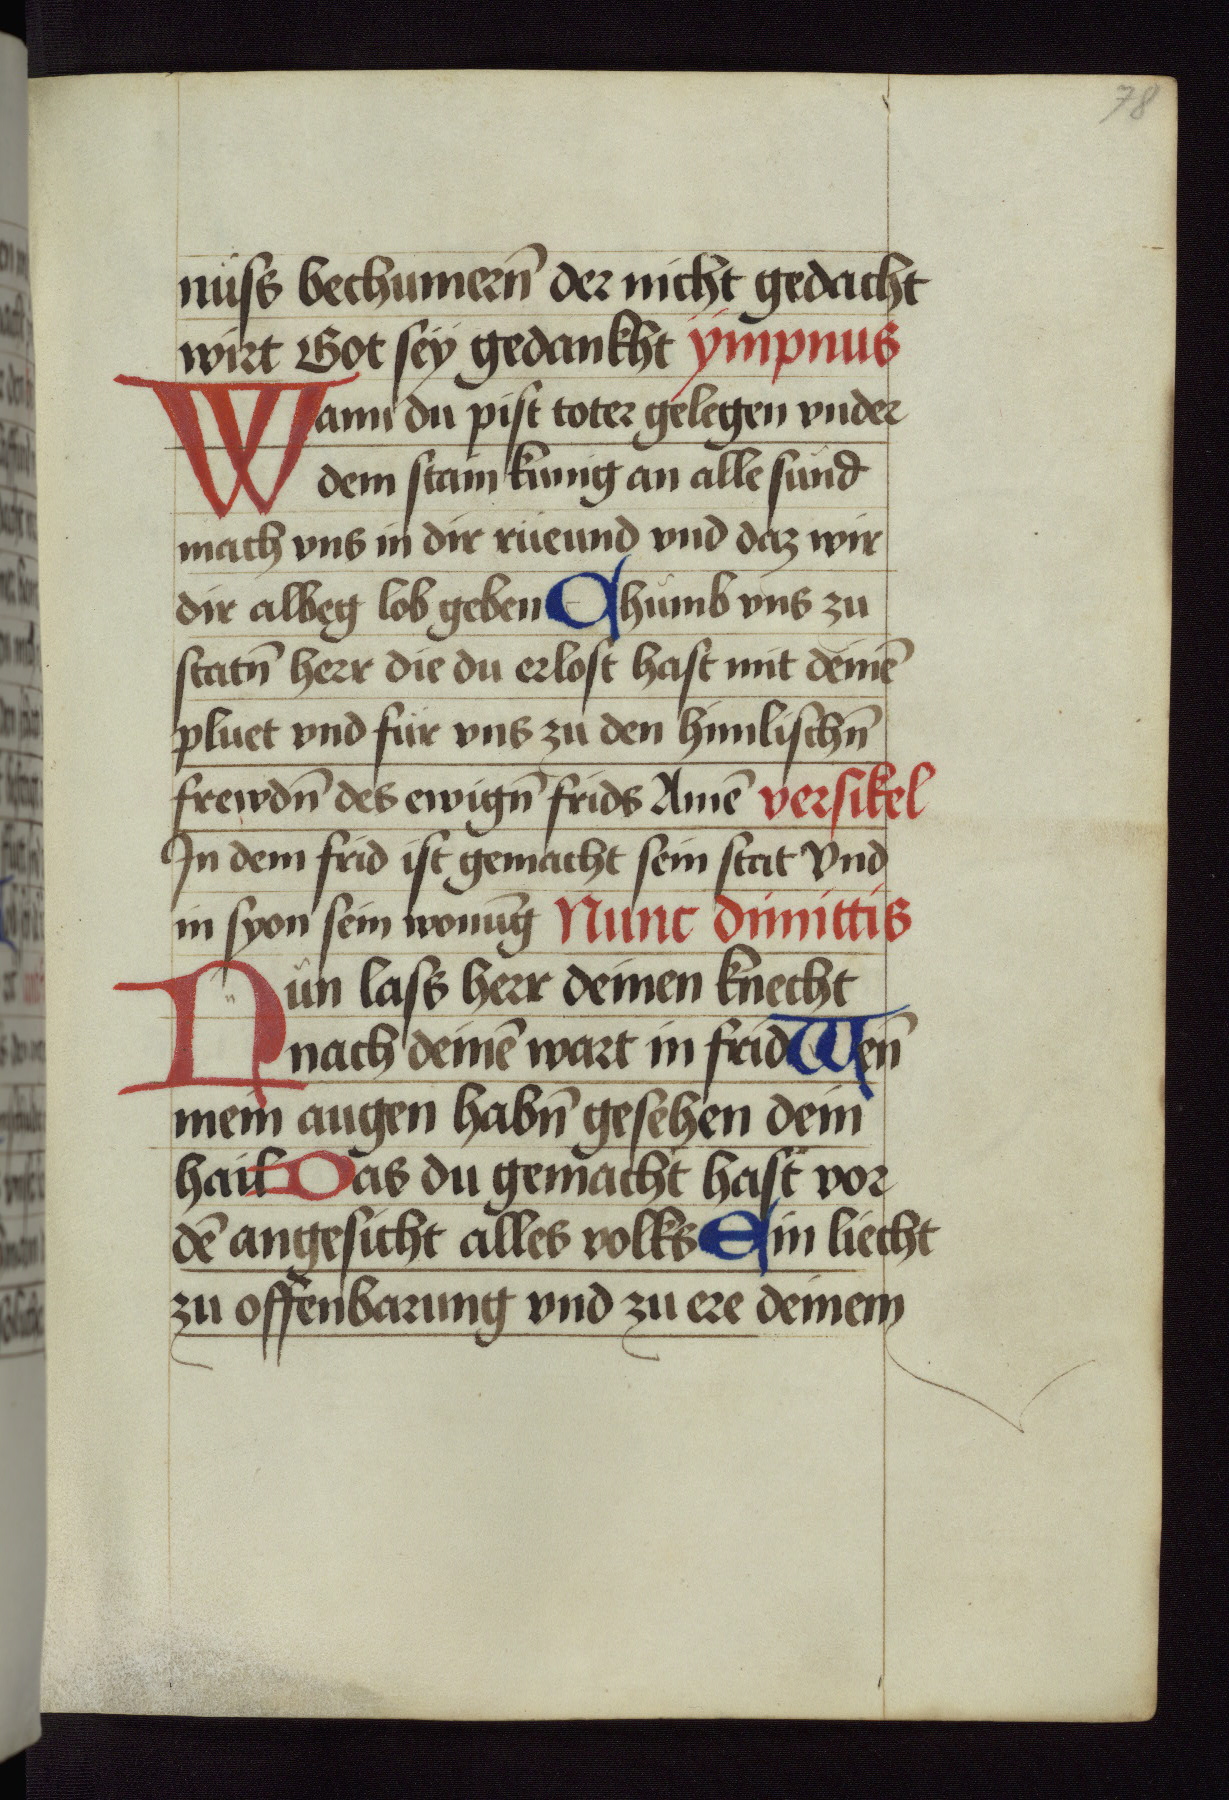 78
nüss bechumern̄ der nicht gedacht
wirt Got sey gedankht ympnus
Wann du pist toter gelegen vnder
dem stain kunig an alle sünd
mach vns in dir rüeund vnd daz wir
dir albeg lob geben Chümb vns zu
statn̄ herr die du erlost hast mit deinē
pluet vnd für vns zu den himlischn̄
frewdn̄ des ewign̄ frids Amē versikel
In dem frid ist gemacht sein stat Vnd
in syon sein wonūg Nunc dimittis
Nun lass herr deinen knecht
nach deinē wart in frid Wen̄
mein augen habn̄ gesehen dein
hail Das du gemacht hast vor
dē angesicht alles volks Ein liecht
zu offenbarung vnd zu ere deinem